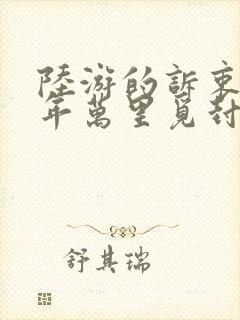 陸游的訴衷
年萬里覓封
舒其瑞